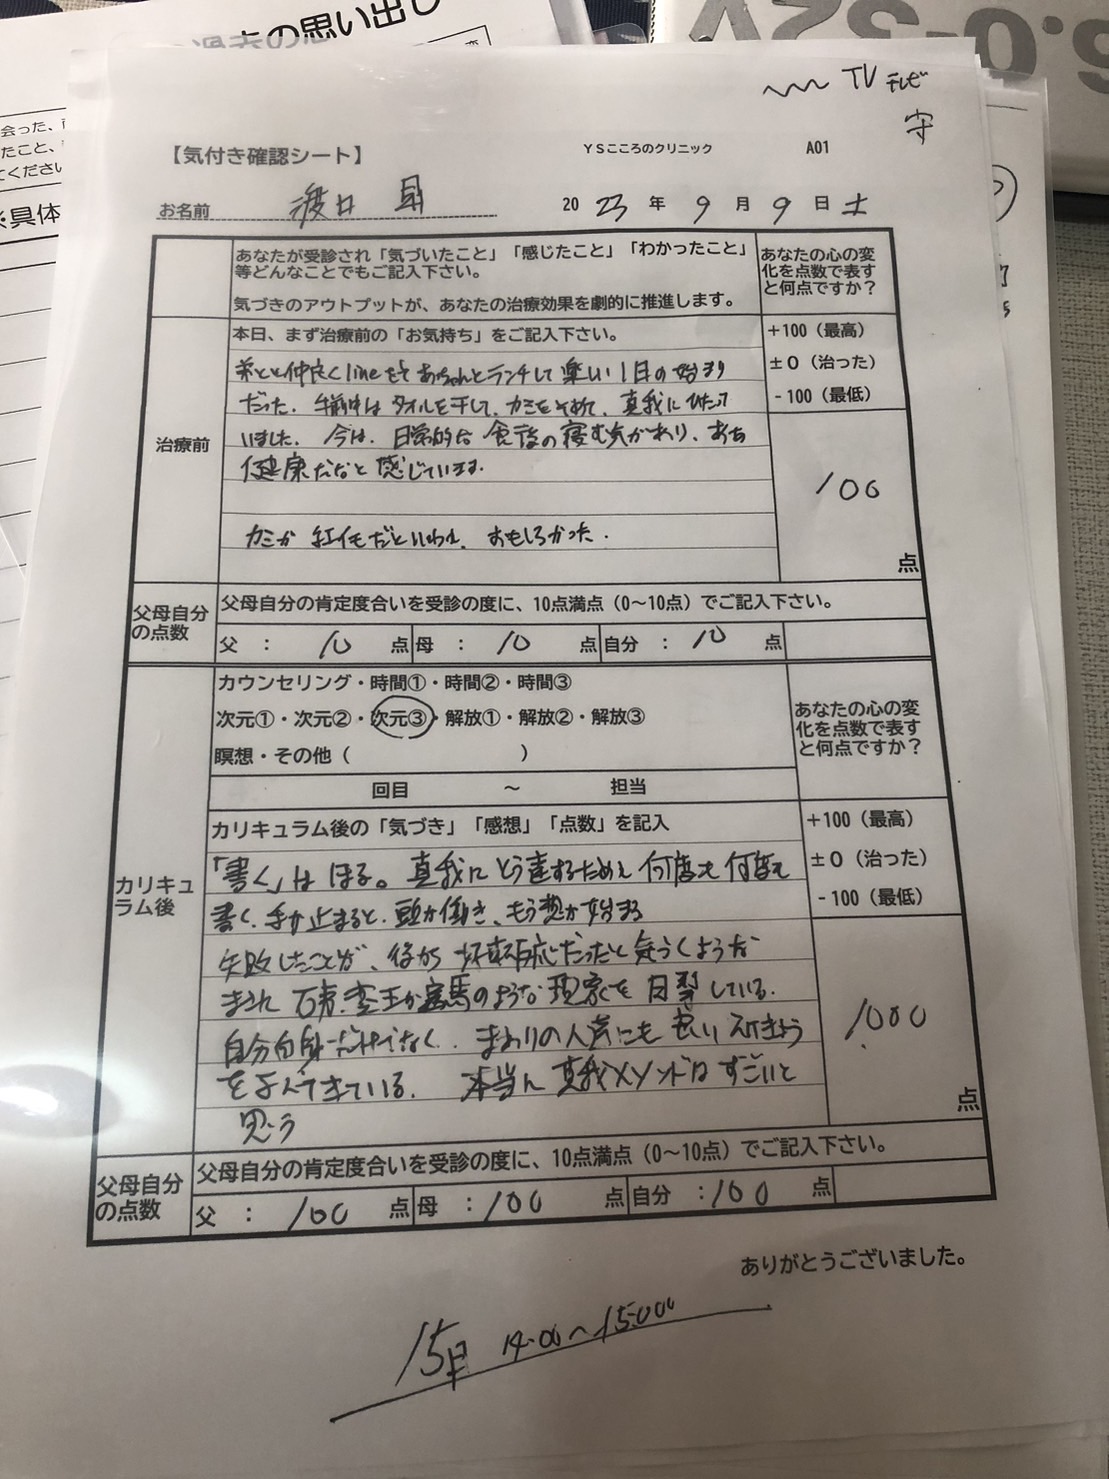 過去の思い出し
会った、
たこと、
てくださ
※具体
TV テレビ
守
【気付き確認シート】 YSこころのクリニック A01
お名前 渡口 昇 2023年9月9日土
あなたが受診され「気づいたこと」「感じたこと」「わかったこと」
等どんなことでもご記入下さい。
気づきのアウトプットが、あなたの治療効果を劇的に推進します。
あなたの心の変
化を点数で表す
と何点ですか？
治療前
本日、まず治療前の「お気持ち」をご記入下さい。
仲良くlineをしてあちゃんとランチして楽しい1日の始まり
だった。午前中はタオルを干して、カミをそめて、真我にひたって
いました。今は、日常的な食後の寝む気があり、あぁ
健康だなと感じています。
カミが紅イモだといわれ、おもしろかった。
+100（最高）
±0（治った）
-100（最低）
100
点
父母自分
の点数
父母自分の肯定度合いを受診の度に、10点満点（0～10点）でご記入下さい。
父 ： 10 点 母 ： 10 点 自分 ： 10 点
カリキュ
ラム後
カウンセリング・時間①・時間②・時間③
次元①・次元②・次元③・解放①・解放②・解放③
瞑想・その他（ ）
回目 ～ 担当
あなたの心の変
化を点数で表す
と何点ですか？
カリキュラム後の「気づき」「感想」「点数」を記入
「書く」はほる。真我にとう達するため 何度も何度も
書く、手が止まると、頭が働き、もう想が始まる
失敗したことが、後から好転反応だったと気づくような
まさに 塞馬のような現象を目撃している。
自分自身だけでなく、まわりの人達にも良いえいきょう
を与えてきている。本当に真我メソッドはすごいと
思う
+100（最高）
±0（治った）
-100（最低）
1000
点
父母自分
の点数
父母自分の肯定度合いを受診の度に、10点満点（0～10点）でご記入下さい。
父 ： 100 点 母 ： 100 点 自分 ： 100 点
ありがとうございました。
15日 14:00～15:00